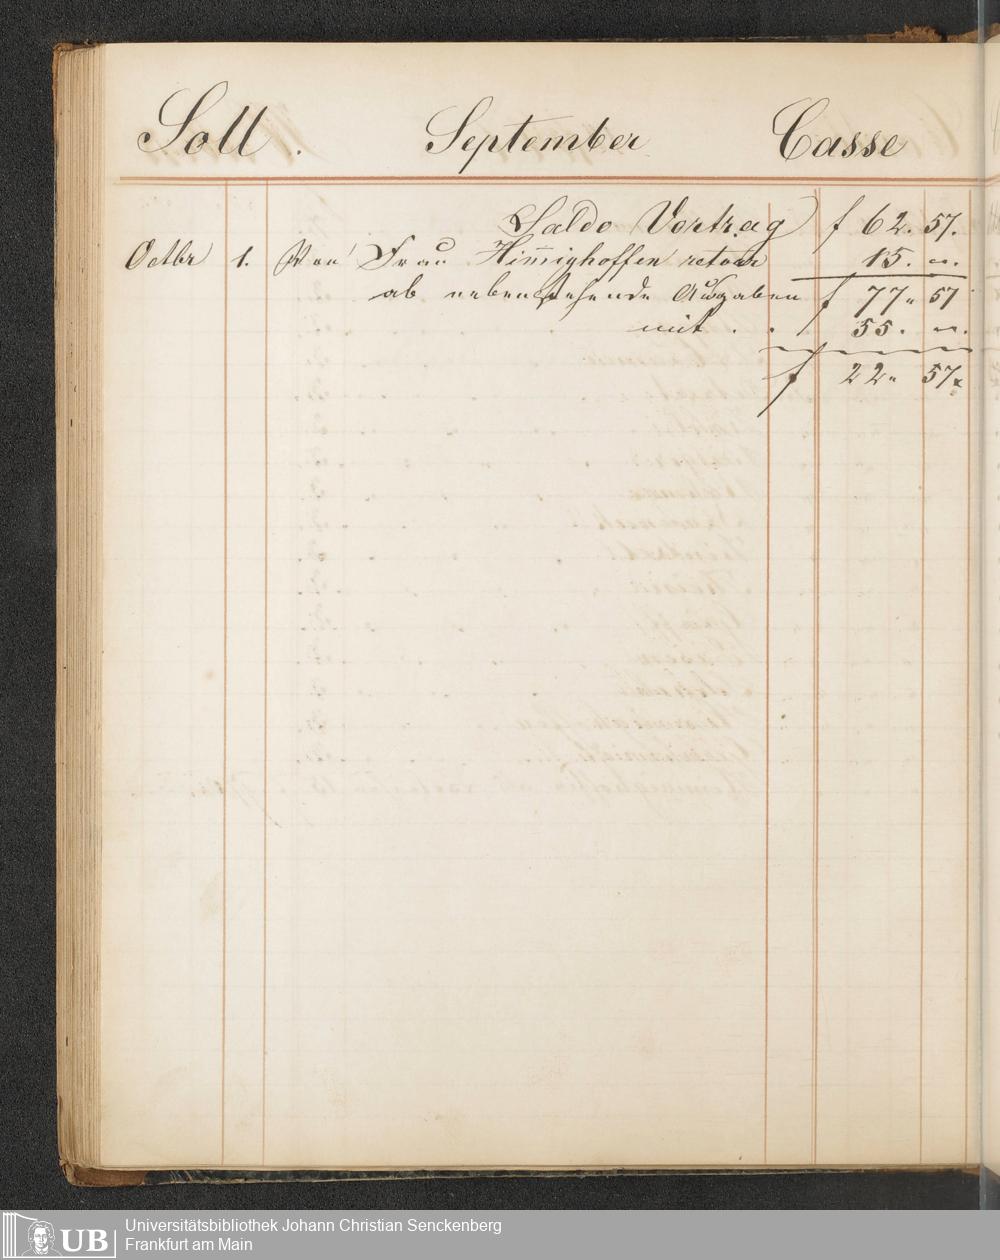 Soll. September Casse
Saldo Vortrag f 62. 57.
Octbr 1. Von Frau Him̄ighoffen retour 15. „.
ab nebenstehende Ausgaben f 77„ 57
mit . . 55. „.
f 22„ 57x
UB
Universitätsbibliothek Johann Christian Senckenberg
Frankfurt am Main